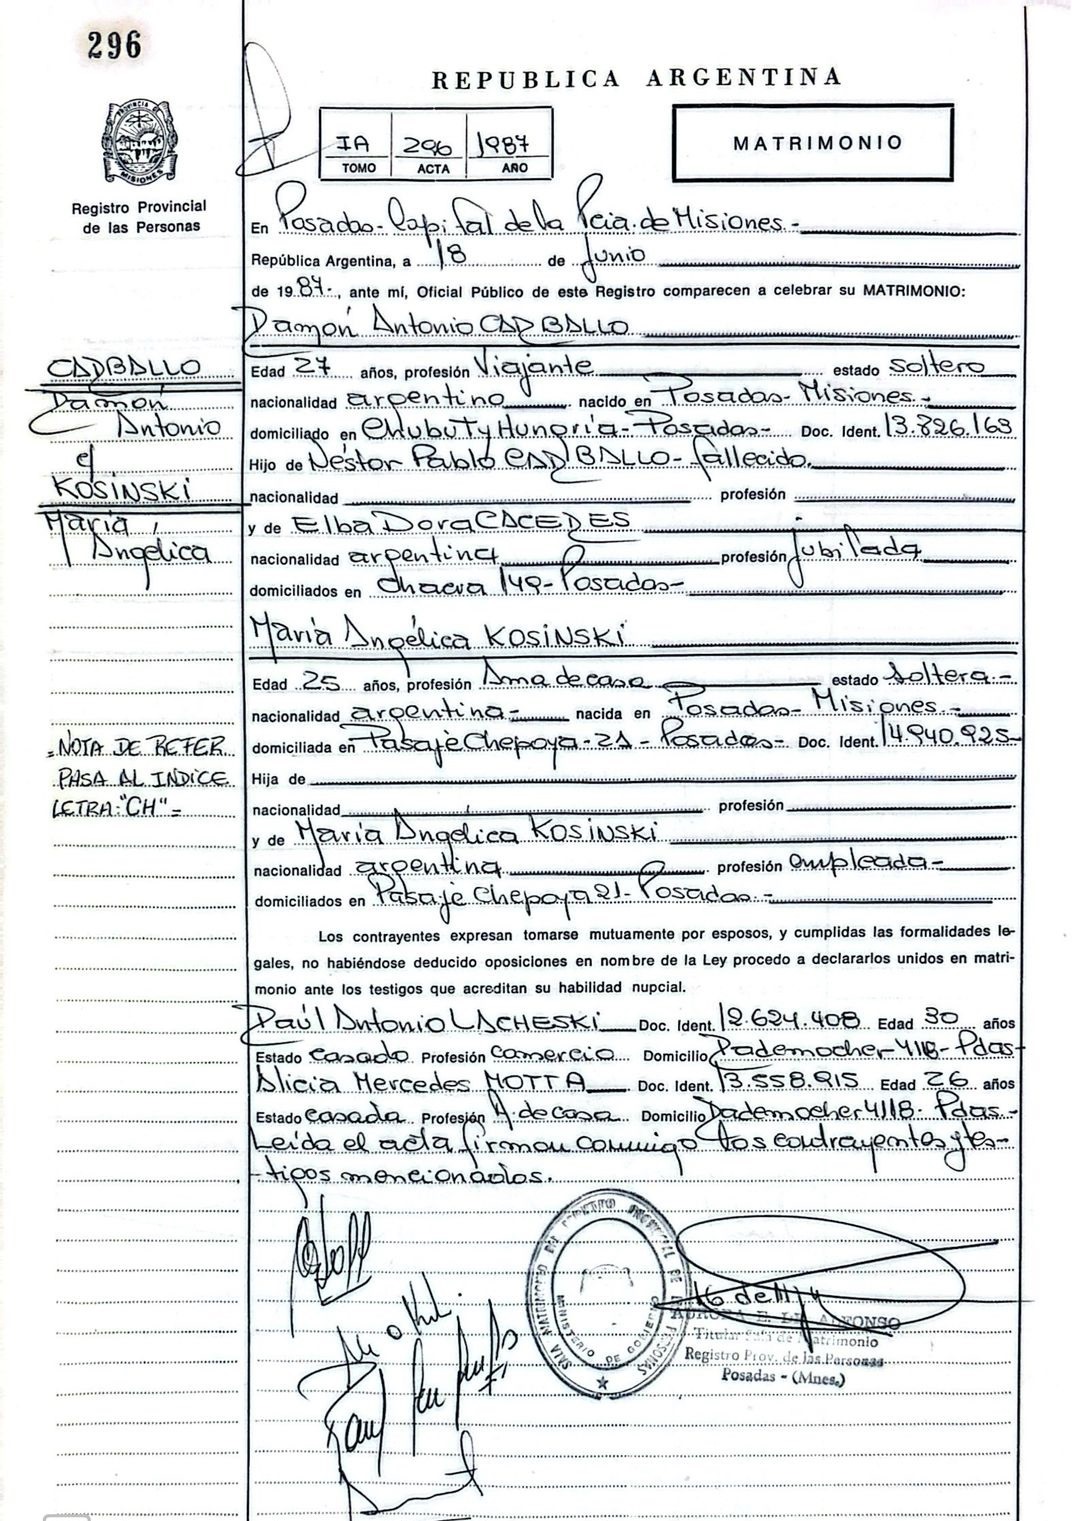 296
REPUBLICA ARGENTINA
IA 296 1987
TOMO ACTA AÑO
MATRIMONIO
PROVINCIA DE MISIONES
Registro Provincial
de las Personas
En Posadas-Capital de la Pcia. de Misiones.-
República Argentina, a 18 de Junio
de 1987-, ante mí, Oficial Público de este Registro comparecen a celebrar su MATRIMONIO:
Ramón Antonio CARBALLO
CARBALLO
Ramón
Antonio
c/
KOSINSKI
María
Angélica
Edad 27 años, profesión Viajante estado soltero
nacionalidad argentino nacido en Posadas-Misiones.-
domiciliado en Chubut y Hungría-Posadas- Doc. Ident. 13.826.163
Hijo de Néstor Pablo CARBALLO-fallecido.
nacionalidad profesión
y de Elba Dora CACERES
nacionalidad argentina profesión jubilada
domiciliados en chacra 149-Posadas-
María Angélica KOSINSKI
Edad 25 años, profesión Ama de casa estado soltera-
nacionalidad argentina- nacida en Posadas-Misiones.-
domiciliada en Pasaje Chepoya-21-Posadas- Doc. Ident. 14.940.925-
=NOTA DE REFER
PASA AL INDICE
LETRA:"CH"=
Hija de
nacionalidad profesión
y de María Angélica KOSINSKI
nacionalidad argentina profesión empleada-
domiciliados en Pasaje Chepoya 21-Posadas.-
Los contrayentes expresan tomarse mutuamente por esposos, y cumplidas las formalidades le-
gales, no habiéndose deducido oposiciones en nombre de la Ley procedo a declararlos unidos en matri-
monio ante los testigos que acreditan su habilidad nupcial.
Raúl Antonio LACHESKI Doc. Ident. 12.624.408 Edad 30 años
Estado casado Profesión Comercio Domicilio Rademocher 4118-Pdas-
Alicia Mercedes MOTTA Doc. Ident. 13.558.915 Edad 26 años
Estado casada Profesión A. de casa Domicilio Rademocher 4118-Pdas.-
Leída el acta firman conmigo los contrayentes y tes-
tigos mencionados.
MINISTERIO DE GOBIERNO
ALFONSO
Titular Sala de Matrimonio
Registro Prov. de las Personas
Posadas - (Mnes.)